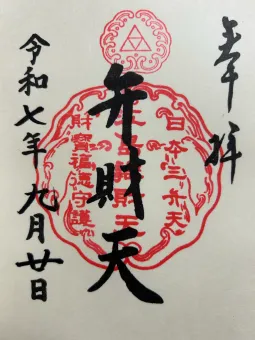 奉拝
日本三弁天
弁財天
財寶福徳守護
令和七年九月廿日